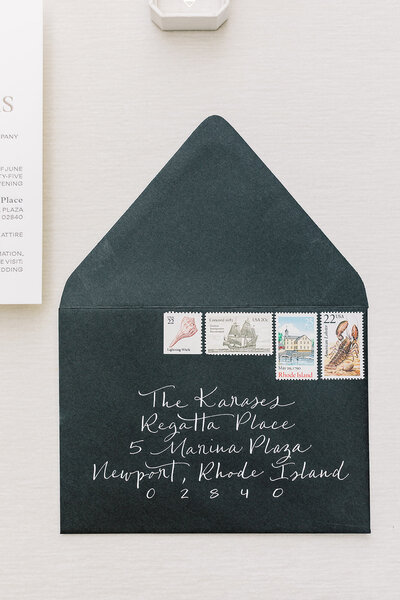 S
MPANY
OF JUNE
TY-FIVE
VENING
Place
PLAZA
02840
ATTIRE
MATION,
E VISIT:
EDDING
22
Lightning Whelk
Concord 1683
USA 20c
May 29, 1790
Rhode Island
22USA
The Karases
Regatta Place
5 Marina Plaza
Newport, Rhode Island
0 2 8 4 0